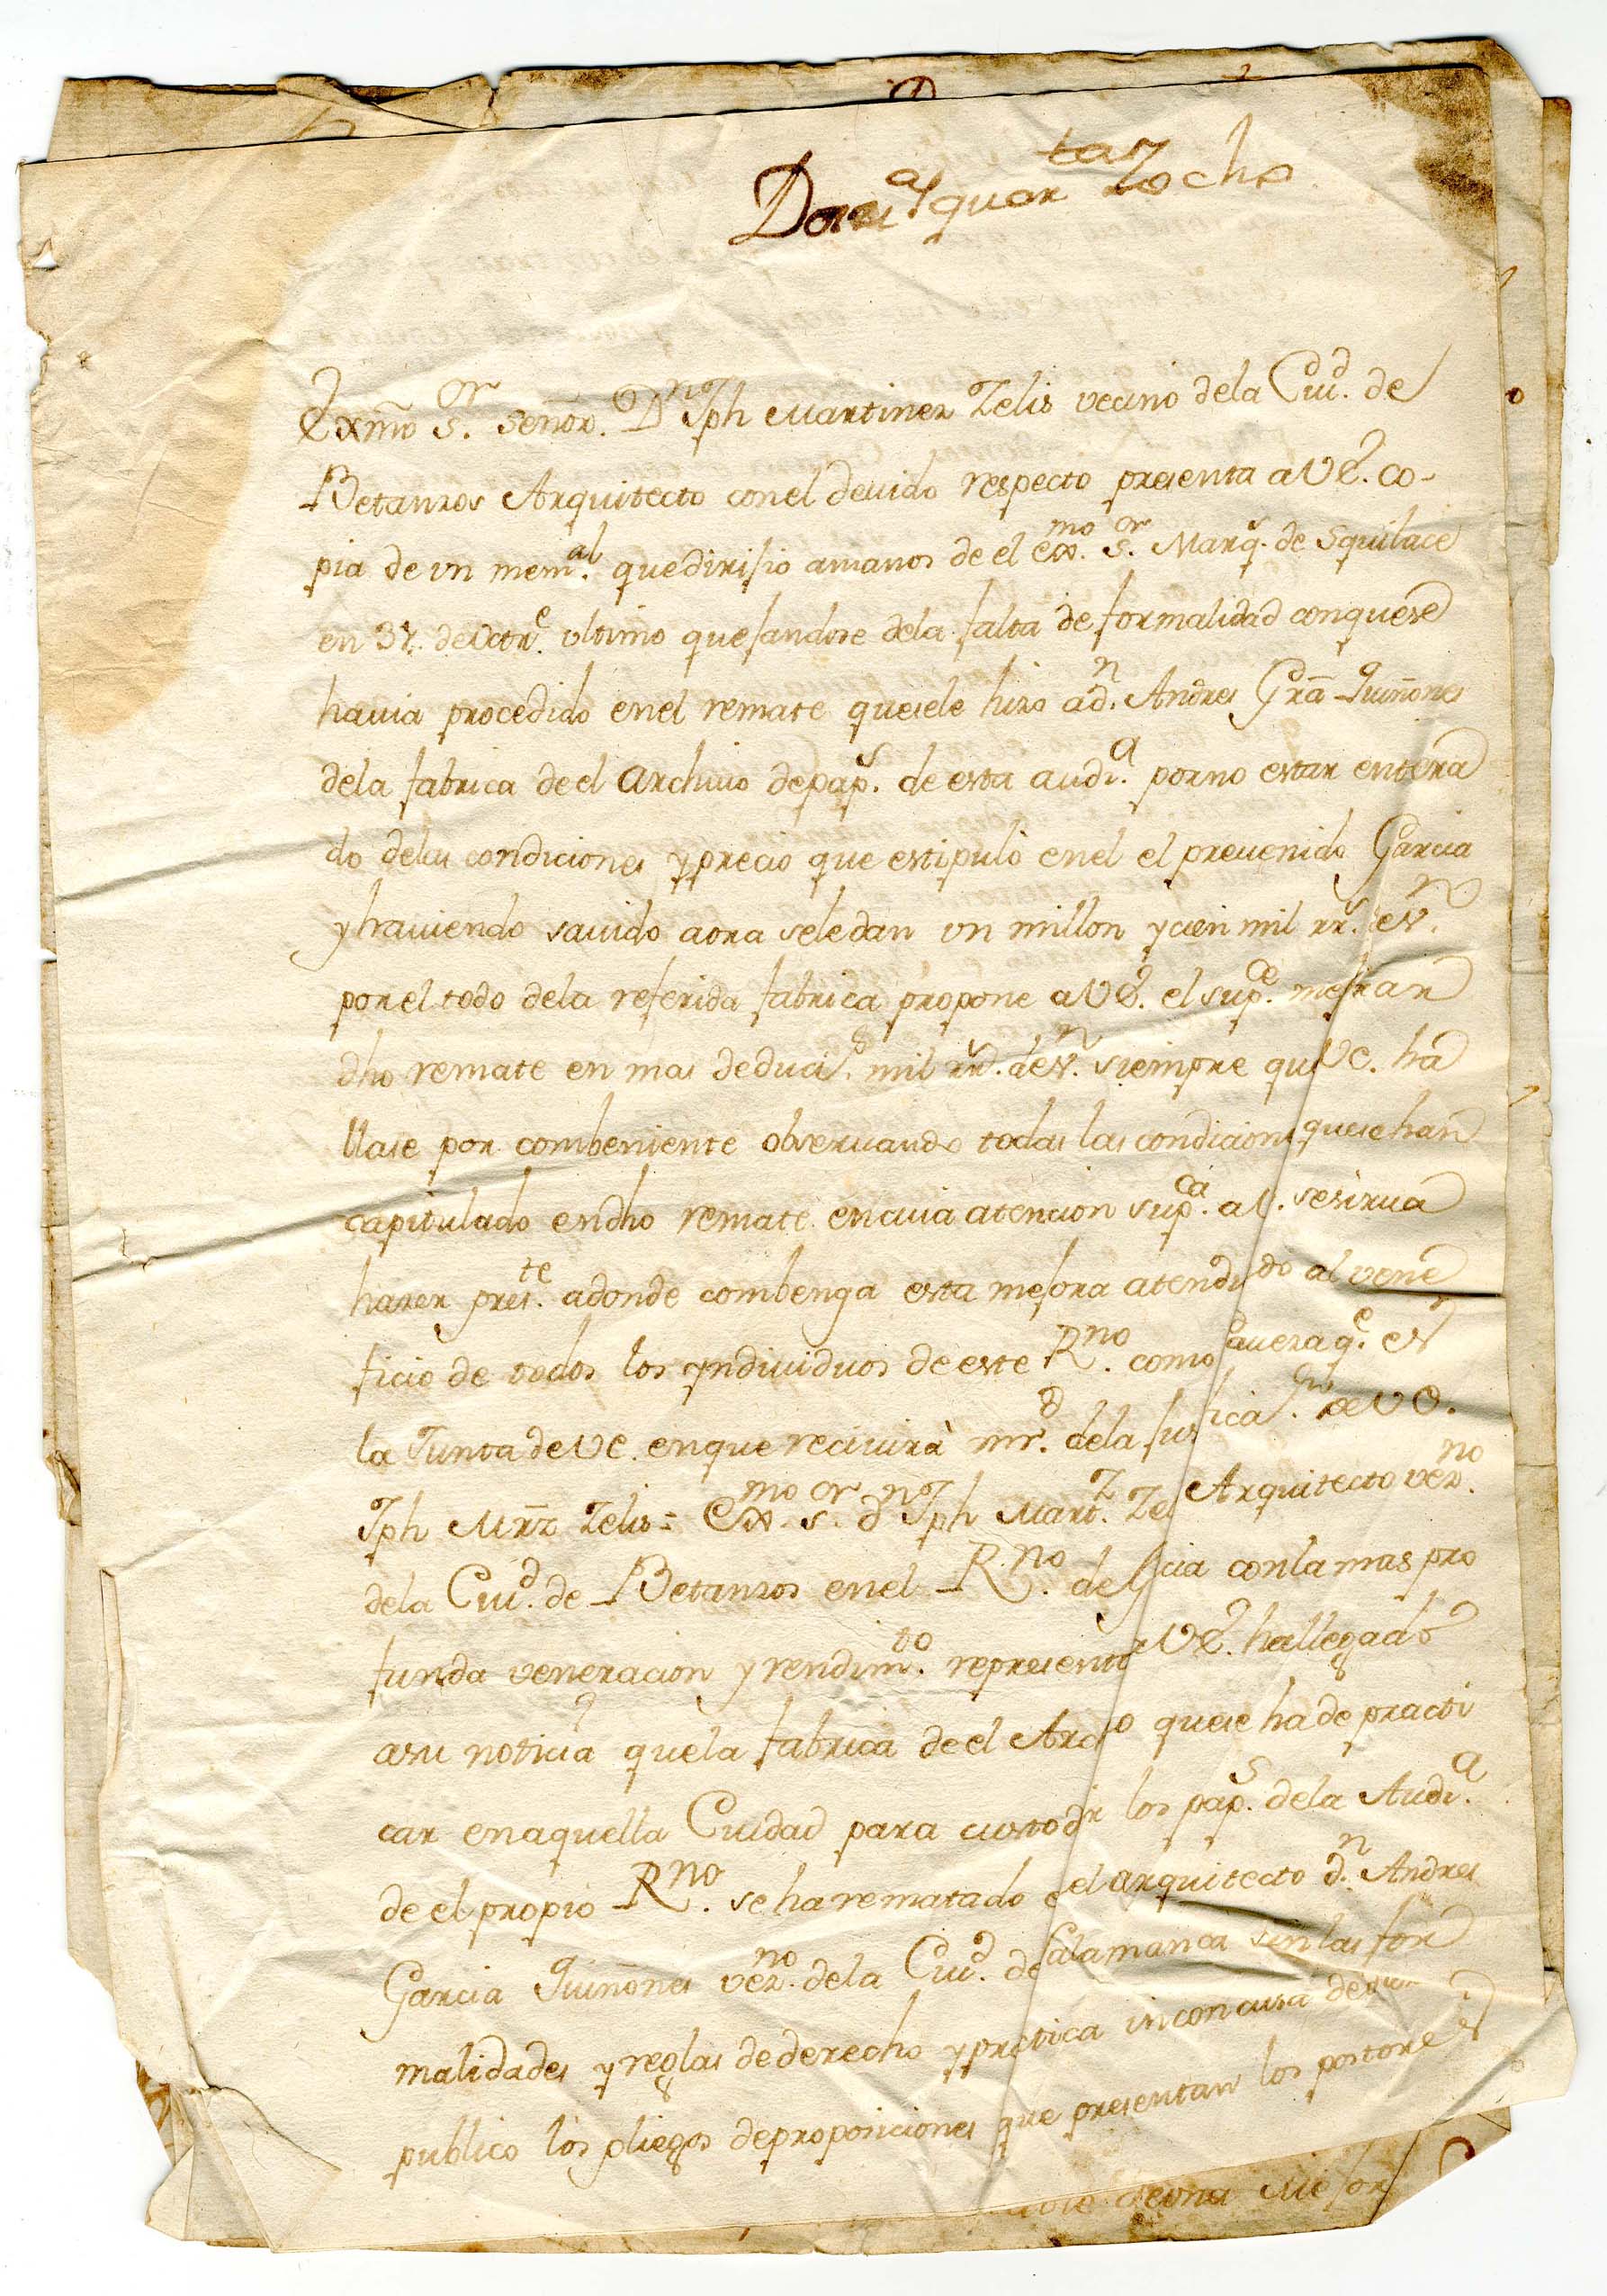 quar ta Zocho
Exmo Sor. Señor. Dn Jph Martinez Zelis vecino dela Ciud. de
Betanzos Arquitecto conel devido respecto presenta aVE. co-
pia de vn memal. quedirijio amanos de el Exmo. Sor. Marqs. de Squilace
en 31. deOctre. vltimo quejandose dela falta de formalidad conquese
havia procedido enel remate quesele hizo adn. Andres Gra Quiñones
dela fabrica de el Archivo depaps. de esta audia. porno estar entera
do delas condiciones y precio que estipulò enel el prevenido Garcia
y haviendo savido aora seledan vn millon ycien mil rrs. evn.
porel todo dela referida fabrica propone aVE. el supce. mejorar
dho remate en mas deduci8. mil rrs. devn. siempre quVE. ha
llase por combeniente observando todas las condicion quesehan
capitulado endho remate encuia atencion supca. aV. sesirva
hazer preste. adonde combenga esta mejora atendido al vene
ficio de todos los yndividuos de este Rno. como avera qe. es
la Junta deVE. enque recivirà mrd. dela jus icia. deVE.
Jph Mrz Zelis = Exmo. sor. dn Jph Martz. Zel Arquitecto vezno.
dela Ciud. de Betanzos enel Rno. de G cia conla mas pro
funda veneracion y rendimto. represent aVE. hallegado
asu noticia quela fabrica de el Arc o quese hade practi
car enaquella Ciudad para custodir los paps. dela Audia.
de el propio Rno. se ha rematado e el arquitecto dn. Andres
Garcia Quiñones vezno. dela Ciud. de Salamanca sinlas for
malidades y reglas de derecho y pratica inconcusa de
publico los pliegos deproposiciones que presentan los postores
deuna Mejor